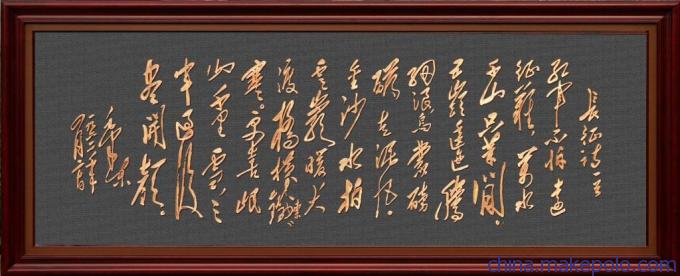 長征诗一首
红军不怕遠
征難,萬水
千山只等闲。
五嶺逶迤騰
细浪烏蒙磅
礴走泥丸。
金沙水拍
雲崖暖大
渡橋橫鐵索
寒。更喜岷
山千里雪三
军过後
盡開颜。
毛澤東
一九六二年
四月廿日
china.makepolo.com